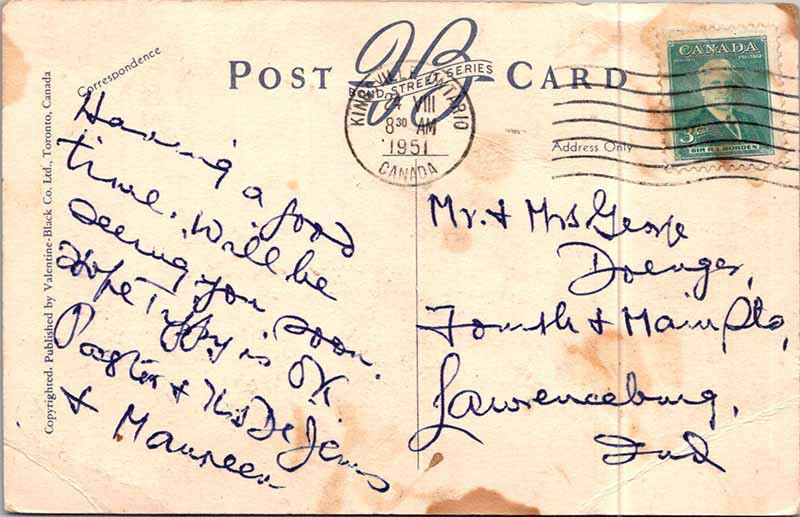 Copyrighted. Published by Valentine-Black Co. Ltd., Toronto, Canada
Correspondence
POST CARD
BOND STREET SERIES
KINGSVILLE ONTARIO
24 VIII
8 30 AM
1951
CANADA
CANADA
3
SIR R.L. BORDEN
Address Only
Having a good
time. Will be
seeing you soon.
Hope Tippy is OK
Pastor & Mrs De Jens
& Maureen
Mr. & Mrs George
Doenges,
Fourth & Main Sts,
Lawrenceburg,
Ind